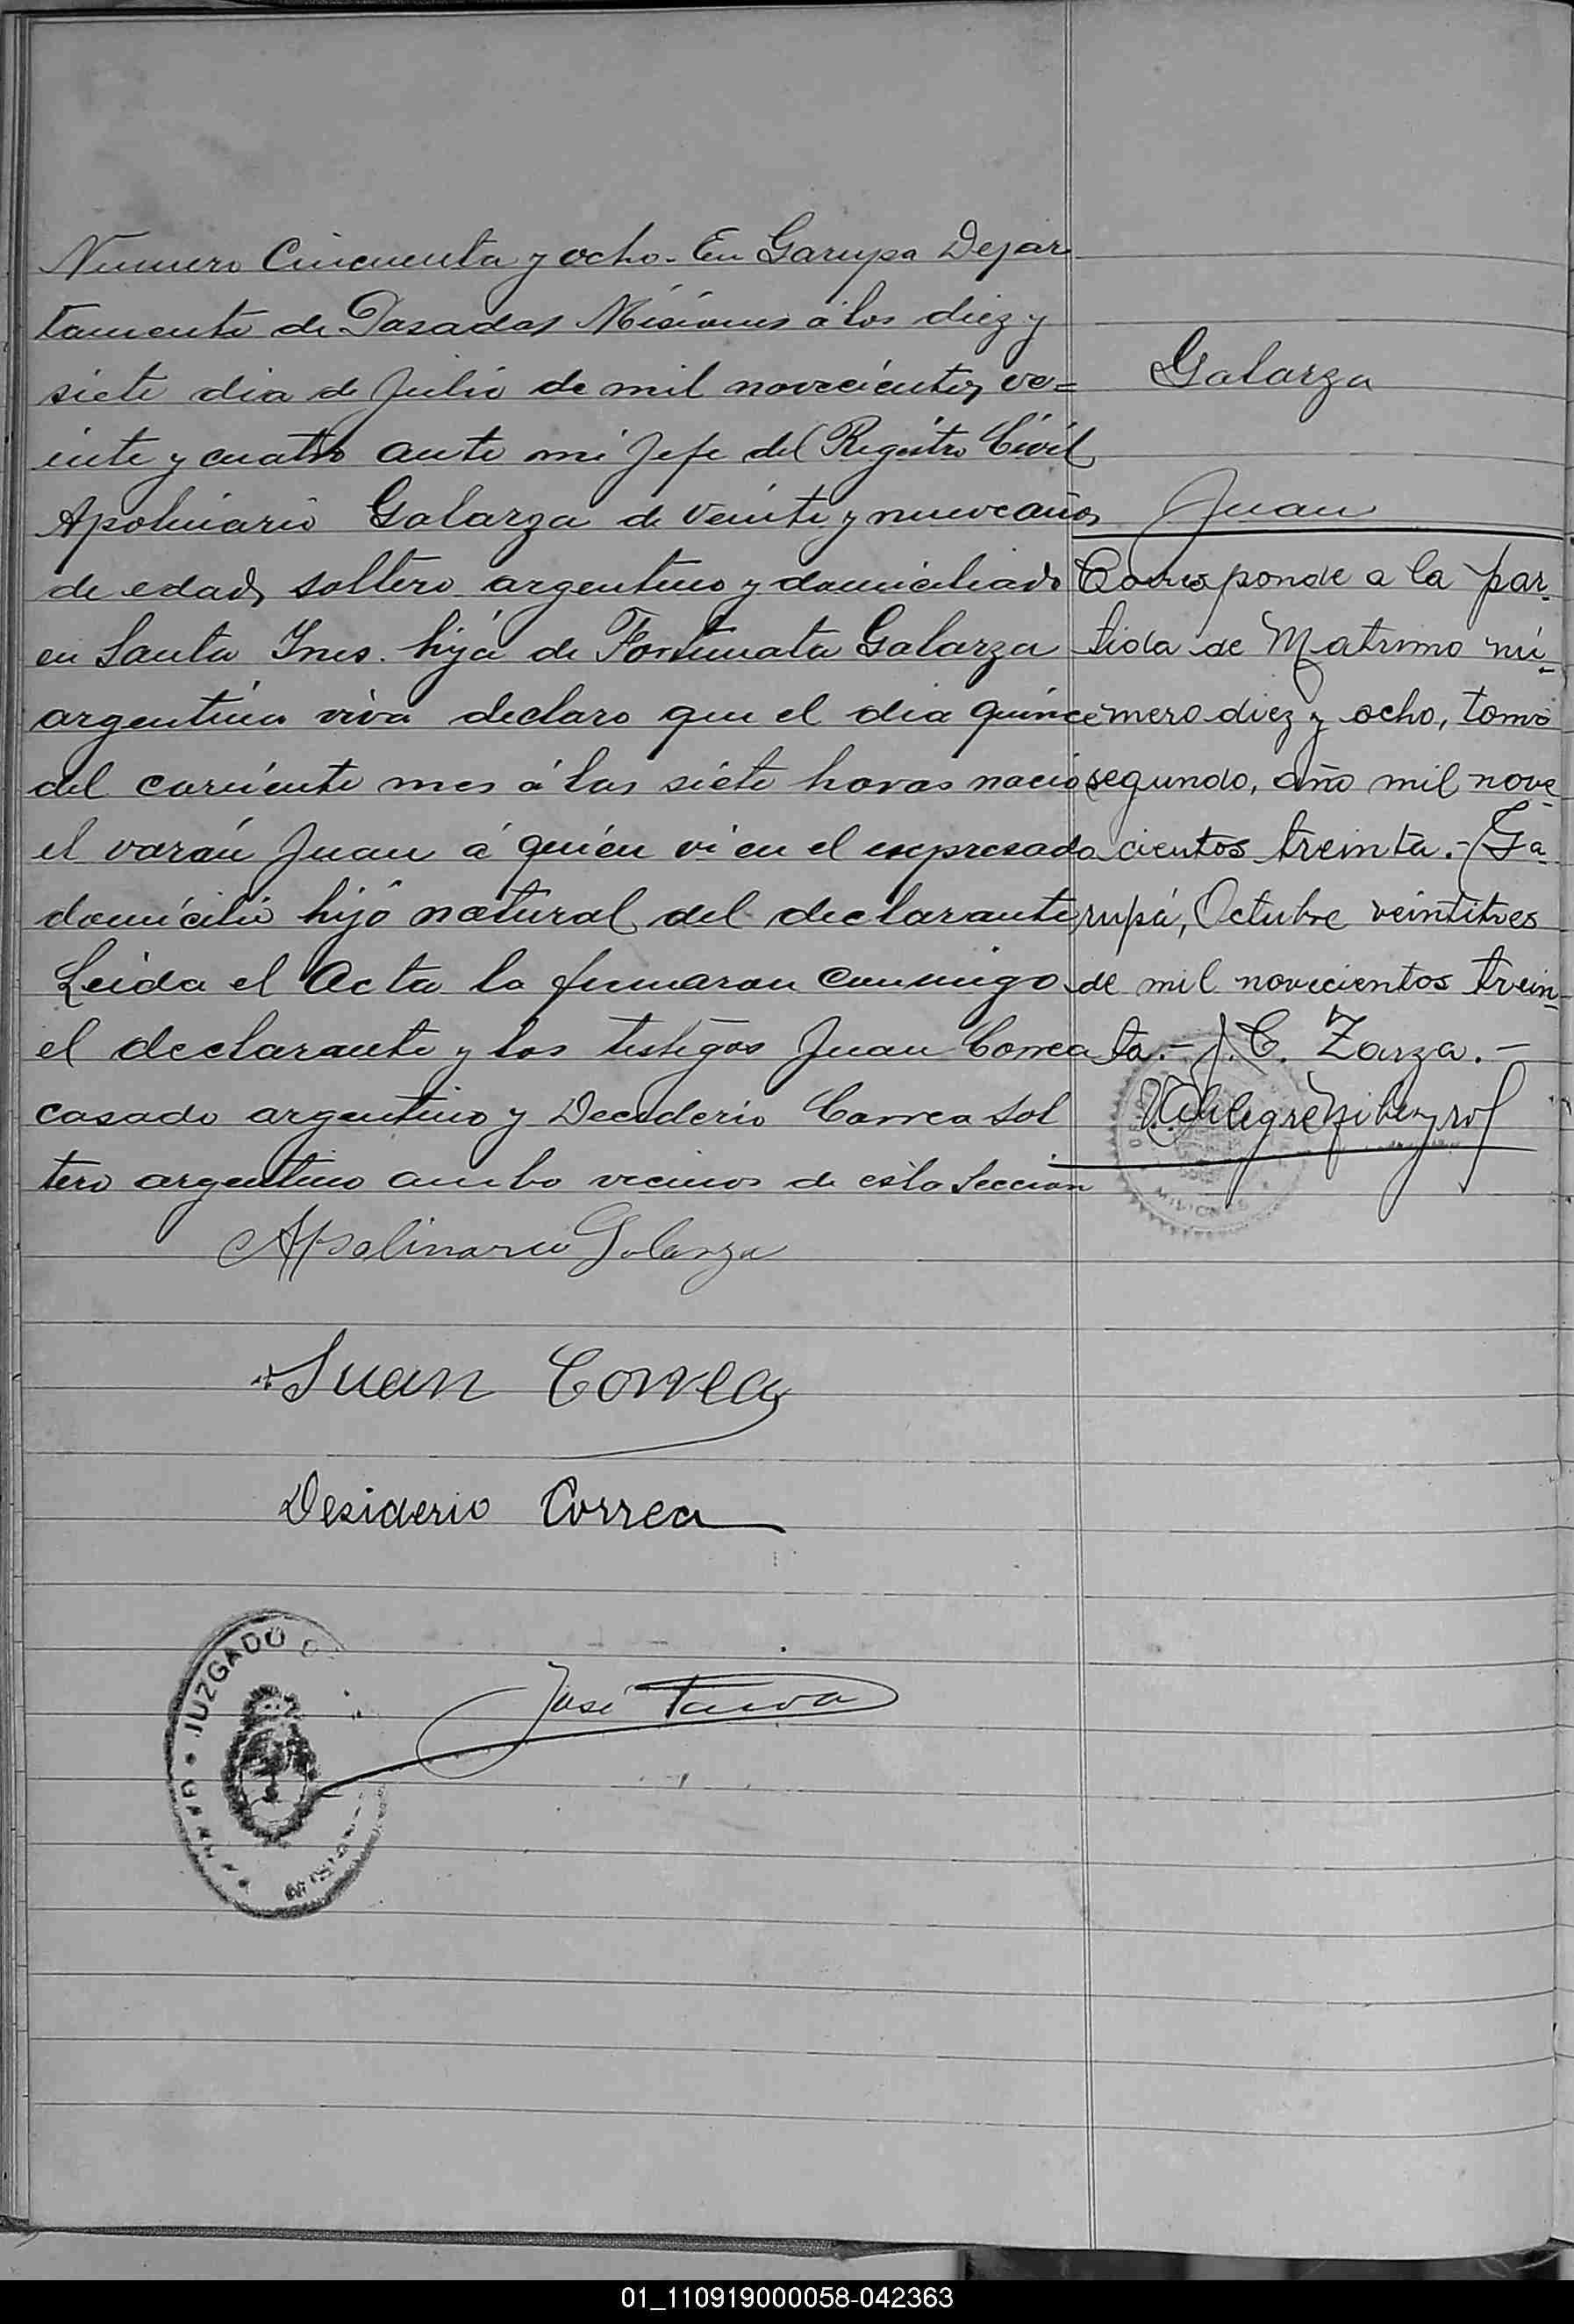 Numero Cincuenta y ocho. En Garupa Depar
tamento de Posadas Misiones á los diez y
siete dia de Julio de mil novecientos ve=
inte y cuatro ante mi Jefe del Registro Civil
Apolinario Galarza de veinte y nueve años
de edad, soltero argentino y domiciliado
en Santa Ines. hijá de Fortunata Galarza
argentina viva declaro que el dia quince
del corriente mes á las siete horas nació
el varón Juan á quién vi en el expresado
domicilio hijo natural del declarante
Leida el Acta la firmaron conmigo
el declarante y los testigos Juan Correa
casado argentino y Decederio Correa sol
tero argentino ambo vecinos de esta Sección
Apolinario Galarza
Juan Correa
Desiderio Correa
José
JUZGADO
Galarza
Juan
Corresponde a la par-
tida de Matrimo nú-
mero diez y ocho, tomo
segundo, año mil nove-
cientos treinta.- Ga-
rupá, Octubre veintitres
de mil novecientos trein-
ta.- J. C. Zarza.-
MISIONES
01_110919000058-042363